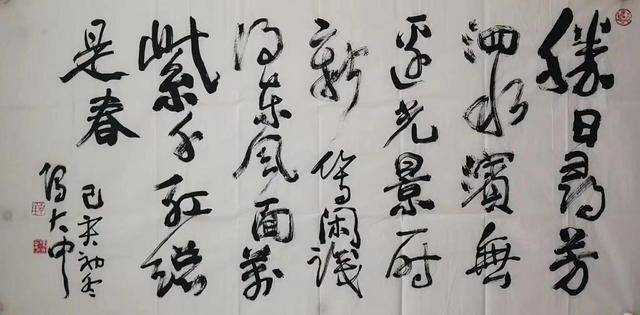 勝日尋芳
泗水濱無
邊光景一時
新等閑識
得东風面萬
紫千紅總
是春
己亥初冬
大中